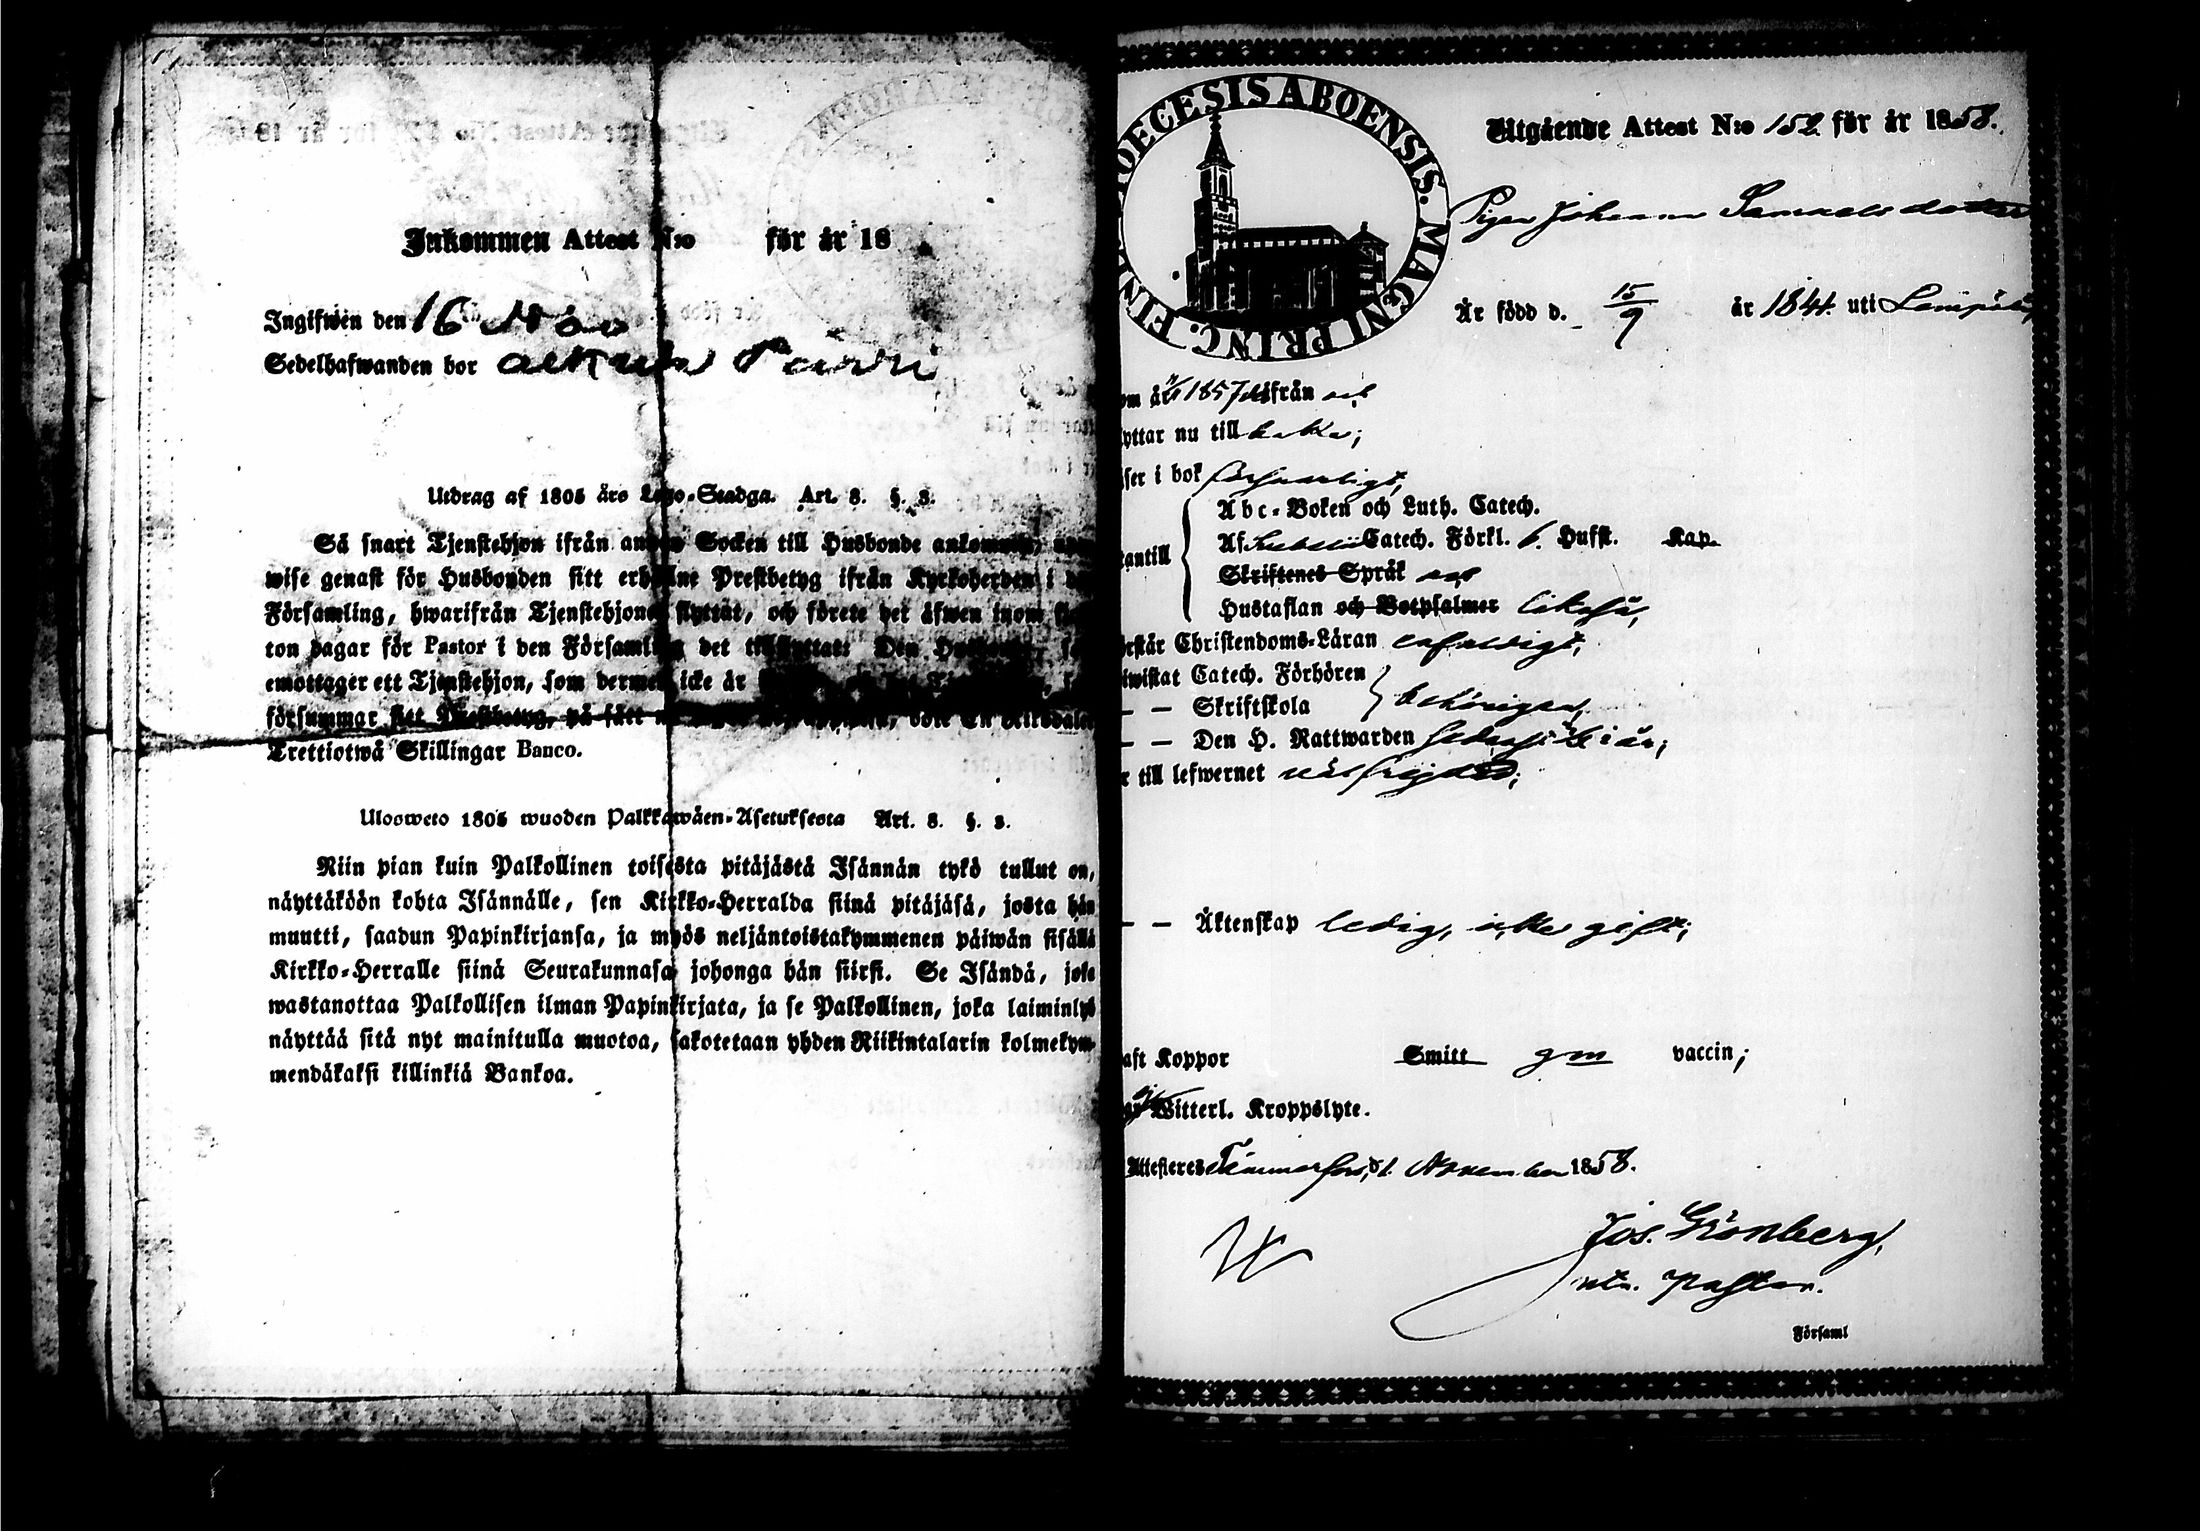 Inkommen Attest N:o för år 18
Ingifwen den 16 Nov
Sedelhafwanden bor
Utdrag af 1805 års Lego-Stadga. Art. 8. §. 3.
Så snart Tjenstehjon ifrån annan Socken till Husbonde ankommit,
wise genast för Husbonden sitt erhållne Prestbetyg ifrån Kyrkoherden i den
Församling, hwarifrån Tjenstehjonet flyttat, och förete det äfwen inom fjor-
ton dagar för Pastor i den Församling det tillflyttat: Den Husbonde, som
emottager ett Tjenstehjon, som dermed icke är
försummar sitt Prestbetyg, på sätt nu böte En Riksdaler
Trettiotwå Skillingar Banco.
Ulosweto 1805 wuoden Palkkawäen-Asetuksesta Art. 8. §. 3.
Niin pian kuin Palkollinen toisesta pitäjästä Isännän tykö tullut on,
näyttäköön kohta Isännälle, sen Kirkko-Herralda siinä pitäjäsä, josta hän
muutti, saadun Papinkirjansa, ja myös neljäntoistakymmenen päiwän sisällä
Kirkko-Herralle siinä Seurakunnasa johonga hän siirsi. Se Isändä, joka
wastanottaa Palkollisen ilman Papinkirjata, ja se Palkollinen, joka laiminlyö
näyttää sitä nyt mainitulla muotoa, sakotetaan yhden Riikintalarin kolmekym-
mendäkaksi killinkiä Bankoa.
DIOECESIS ABOENSIS. MAGNI PRINC. FINL.
Utgående Attest N:o 152 för år 1858.
Pigan Johanna Samuelsdotter
Är född d. 15/9 år 1841. uti Lempäälä,
om år 1857 ifrån
yttar nu till
ser i bok försvarligt,
Abc-Boken och Luth. Catech.
antill Af Catech. Förkl. 6. Hufst. Kap.
Skriftenes Språk
Hustaflan och Botpsalmer likaså,
rstår Christendoms-Läran enfaldigt,
iwistat Catech. Förhören
– – Skriftskola behörigen,
– – Den H. Nattwarden i år;
r till lefwernet välfrejdad;
– – Äktenskap ledig, icke gift;
aft Koppor Smitt gm vaccin;
Witterl. Kroppslyte.
Attesteres Tammerfors, d 1. November 1858.
Jos. Grönberg,
Pastor.
Församl